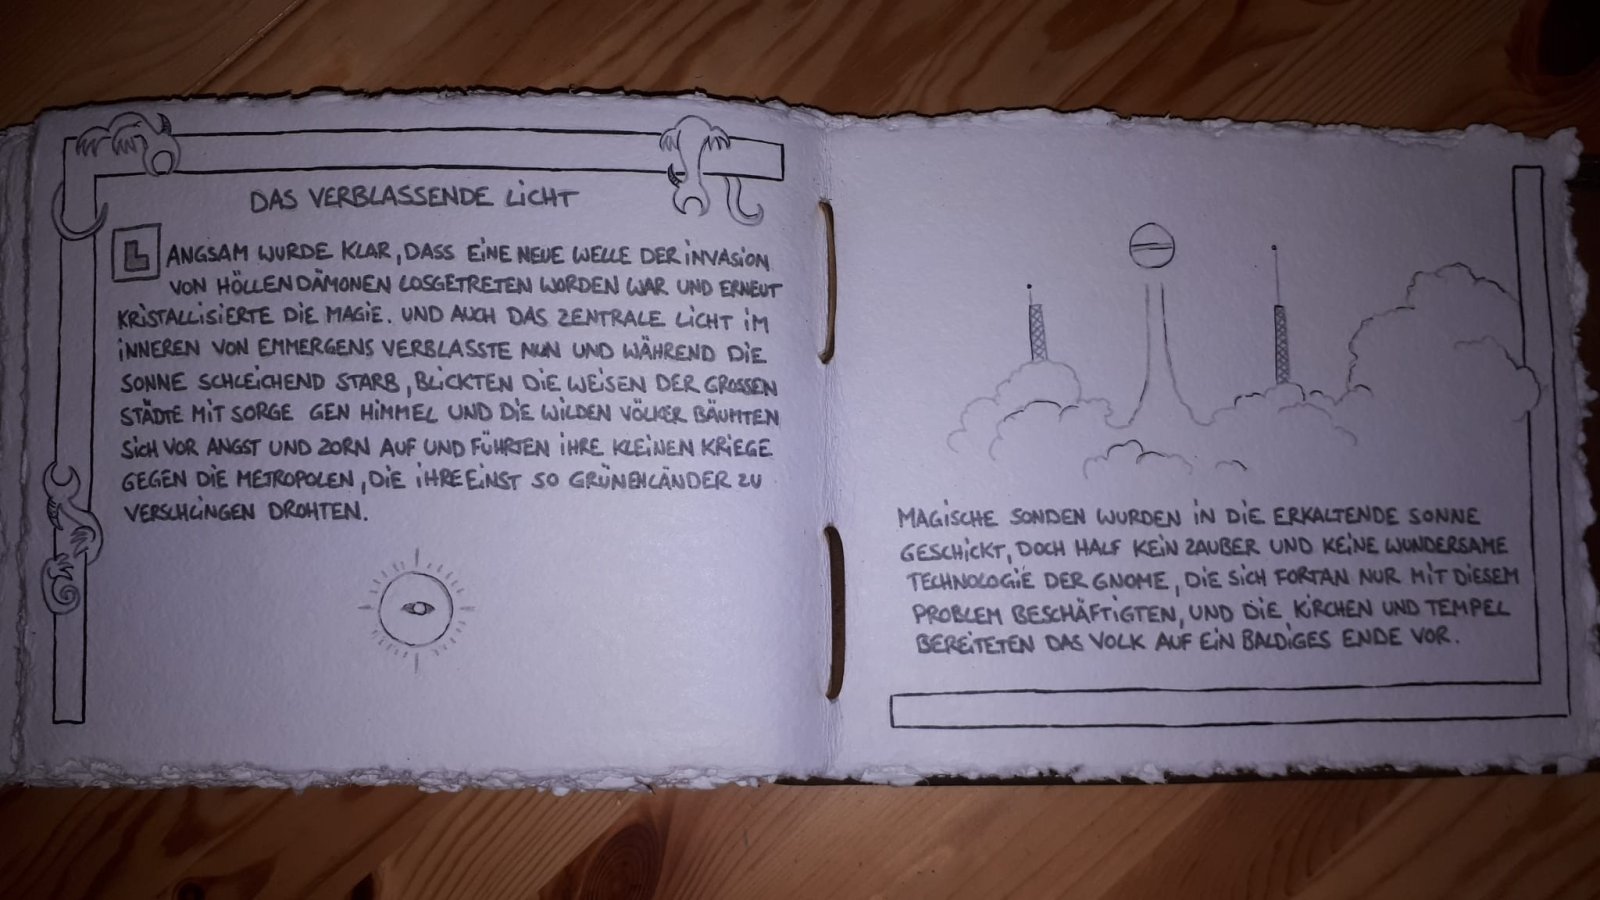 DAS VERBLASSENDE LICHT
LANGSAM WURDE KLAR, DASS EINE NEUE WELLE DER INVASION
VON HÖLLENDÄMONEN LOSGETRETEN WORDEN WAR UND ERNEUT
KRISTALLISIERTE DIE MAGIE. UND AUCH DAS ZENTRALE LICHT IM
INNEREN VON EMMERGENS VERBLASSTE NUN UND WÄHREND DIE
SONNE SCHLEICHEND STARB, BLICKTEN DIE WEISEN DER GROSSEN
STÄDTE MIT SORGE GEN HIMMEL UND DIE WILDEN VÖLKER BÄUMTEN
SICH VOR ANGST UND ZORN AUF UND FÜHRTEN IHRE KLEINEN KRIEGE
GEGEN DIE METROPOLEN, DIE IHRE EINST SO GRÜNEN LÄNDER ZU
VERSCHLINGEN DROHTEN.
MAGISCHE SONDEN WURDEN IN DIE ERKALTENDE SONNE
GESCHICKT, DOCH HALF KEIN ZAUBER UND KEINE WUNDERSAME
TECHNOLOGIE DER GNOME, DIE SICH FORTAN NUR MIT DIESEM
PROBLEM BESCHÄFTIGTEN, UND DIE KIRCHEN UND TEMPEL
BEREITETEN DAS VOLK AUF EIN BALDIGES ENDE VOR.